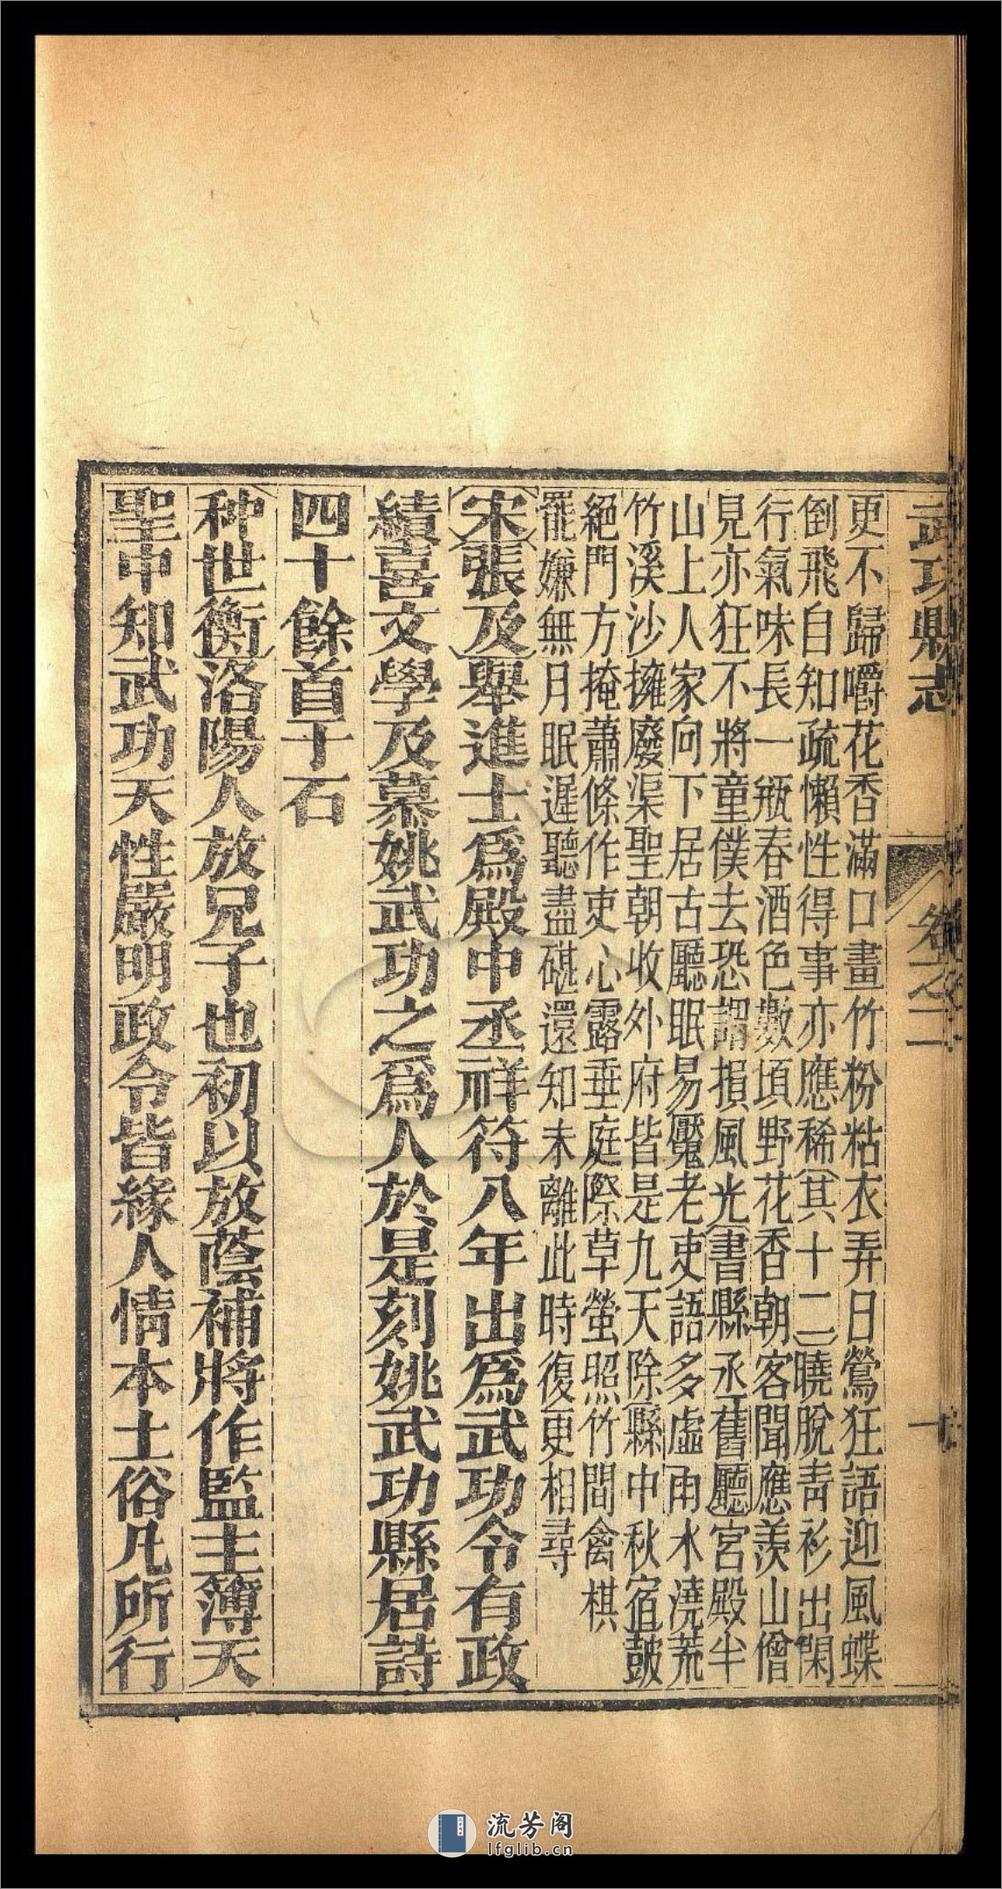 武功縣志　卷之二　十
更不歸嚼花香滿口畫竹粉粘衣弄日鶯狂語迎風蝶
倒飛自知疏懶性得事亦應稀(其十二)曉脫青衫出閑
行氣味長一瓶春酒色數頃野花香朝客聞應羨山僧
見亦狂不將童僕去恐謂損風光(書縣丞舊廳)宮殿半
山上人家向下居古廳眠易魘老吏語多虛雨水澆荒
竹溪沙擁廢渠聖朝收外府皆是九天除(縣中秋宿)皷
絕門方掩蕭條作吏心露垂庭際草螢照竹間禽棋
罷嫌無月眠遲聽盡碪還知未離此時復更相尋
(宋張及)舉進士爲殿中丞祥符八年出爲武功令有政
績喜文學及慕姚武功之爲人於是刻姚武功縣居詩
四十餘首于石
种世衡)洛陽人放兄子也初以放蔭補將作監主簿天
聖中知武功天性嚴明政令皆緣人情本土俗凡所行
流芳阁
lfglib.cn